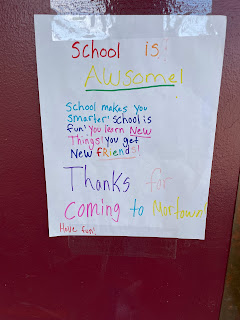 School is
Awsome!
School makes you
smarter! School is
fun! You learn New
Things! You get
New Friends!
Thanks for
coming to Martown!
Have fun!